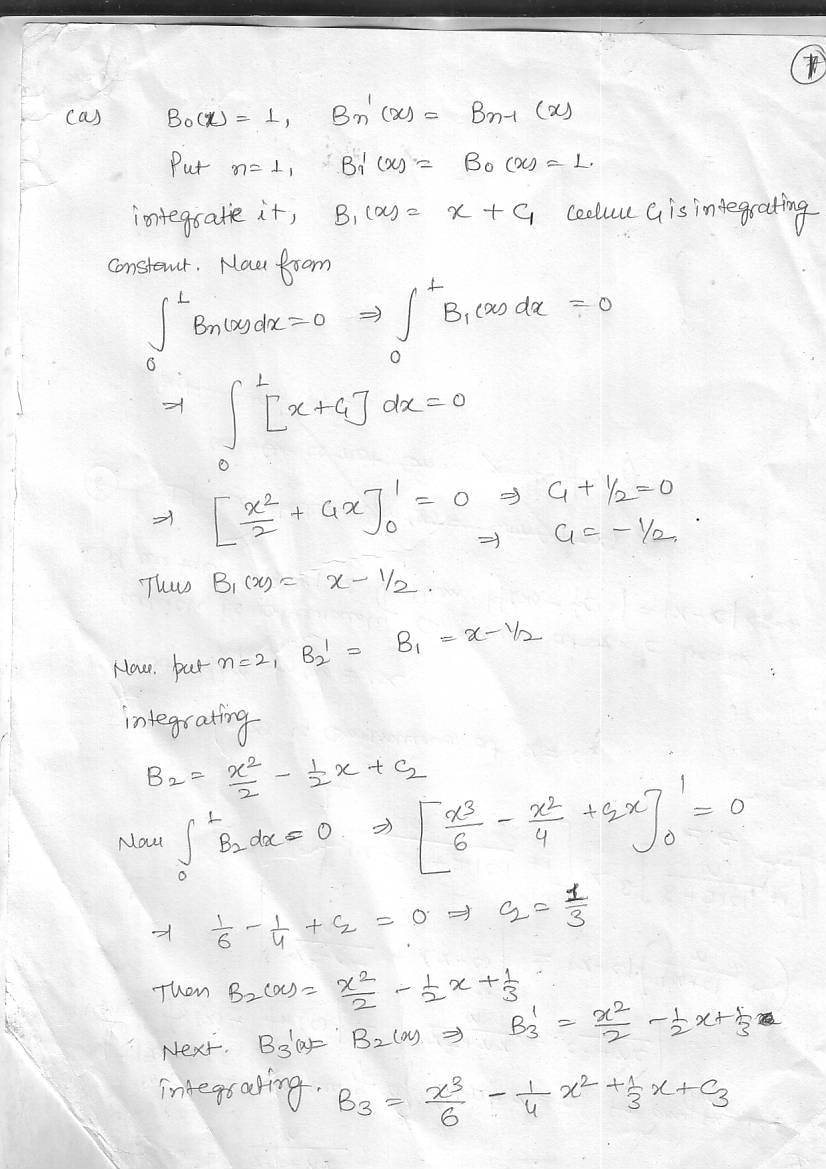 (7)
(a) B₀(x) = 1, Bn'(x) = Bn-1 (x)
Put n=1, B₁'(x) = B₀(x) = 1.
integrate it, B₁(x) = x + C₁ where C₁ is integrating
constant. Now from
∫₀¹ Bn(x)dx=0 ⇒ ∫₀¹ B₁(x)dx = 0
⇒ ∫₀¹ [x+C₁] dx=0
⇒ [x²/2 + C₁x]₀¹ = 0 ⇒ C₁ + 1/2=0
⇒ C₁ = -1/2.
Thus B₁(x) = x - 1/2.
Now. put n=2, B₂' = B₁ = x-1/2
integrating
B₂ = x²/2 - 1/2 x + C₂
Now ∫₀¹ B₂dx = 0 ⇒ [x³/6 - x²/4 + C₂x]₀¹ = 0
⇒ 1/6 - 1/4 + C₂ = 0 ⇒ C₂ = 1/3
Then B₂(x) = x²/2 - 1/2 x + 1/3
Next. B₃'(x)= B₂(x) ⇒ B₃' = x²/2 - 1/2 x + 1/3
integrating. B₃ = x³/6 - 1/4 x² + 1/3 x + C₃